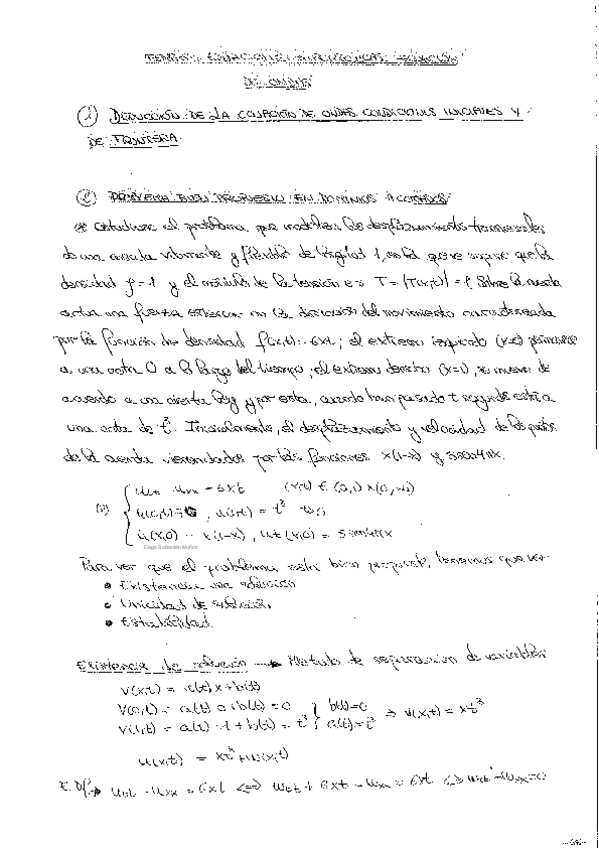 DE ONDAS
① DEDUCCIÓN DE LA ECUACIÓN DE ONDAS CONDICIONES INICIALES Y
DE FRONTERA.
② PROBLEMA BIEN PROPUESTO EN DOMINIOS ACOTADOS
Estudiar el problema que modeliza los desplazamientos transversales
de una cuerda vibrante y flexible de longitud 1, en la que se supone que la
densidad ρ=1 y el módulo de la tensión es T = |T(x,t)| = 1. Sobre la cuerda
actúa una fuerza externa en la dirección del movimiento caracterizada
por la función de densidad f(x,t) = 6xt; el extremo izquierdo (x=0) permanece
a una cota 0 a lo largo del tiempo; el extremo derecho (x=1), se mueve de
acuerdo a una cierta ley y por esta, cuando han pasado t segundos está a
una cota de t³. Inicialmente, el desplazamiento y velocidad de los puntos
de la cuerda vienen dados por las funciones x(1-x) y
u(0,t)=0, u(1,t) = t³
u(x,0) = x(1-x), ut(x,0) =
Diego Sebastián Muñoz
Para ver que el problema está bien propuesto, tenemos que ver:
• Existencia de solución
• Unicidad de solución
• Estabilidad.
Existencia de solución → Método de separación de variables
v(x,t) = a(t)x+b(t)
v(0,t) = a(t)·0+b(t) = 0 } b(t)=0
v(1,t) = a(t)·1+b(t) = t³ } a(t)=t³ ⇒ v(x,t) = xt³
u(x,t) = xt³+w(x,t)
utt - uxx = 6xt ⟺ wtt + 6xt - wxx = 6xt ⟺ wtt - wxx = 0